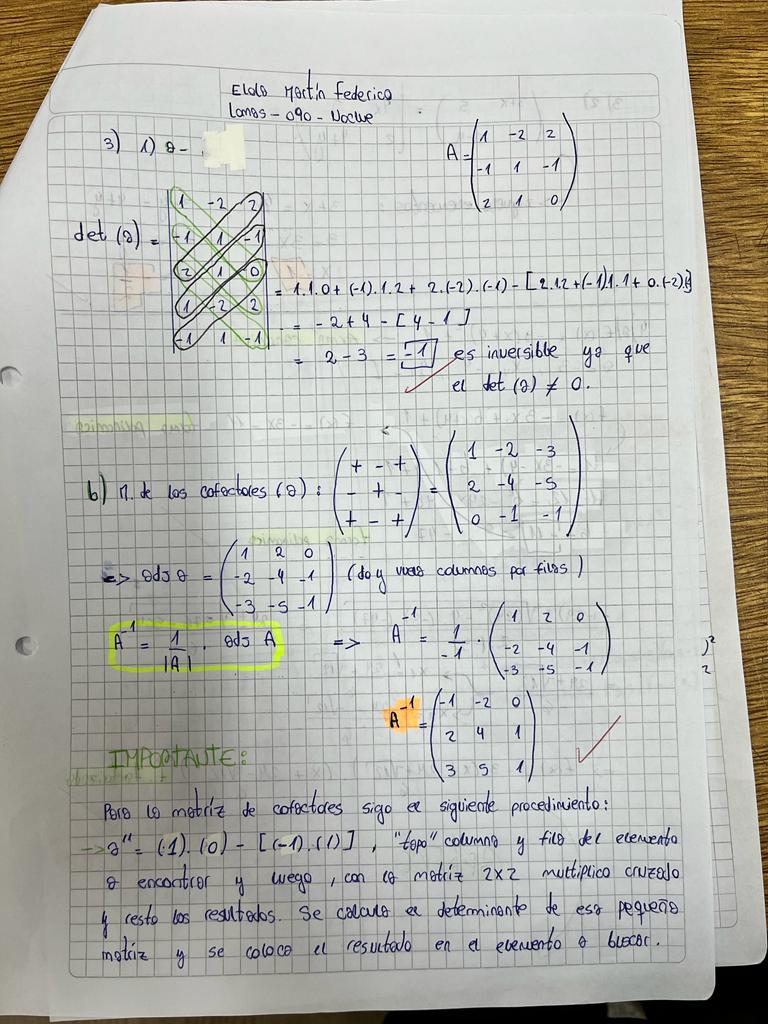 Elola Martín Federico
Lanas - 090 - Noche
3) 1) a-
A = ( 1 -2 2
-1 1 -1
2 1 0 )
det (a) = | 1 -2 2
-1 1 -1
2 1 0
1 -2 2
-1 1 -1 |
= 1.1.0 + (-1).1.2 + 2.(-2).(-1) - [2.1.2 + (-1)1.1 + 0.(-2).(-1)]
= -2 + 4 - [4 - 1]
= 2 - 3 = -1 es inversible ya que
el det (a) ≠ 0.
b) M. de los cofactores (a) : ( + - +
- + -
+ - + ) = ( 1 -2 -3
2 -4 -5
0 -1 -1 )
=> adj a = ( 1 2 0
-2 -4 -1
-3 -5 -1 ) (doy vuelta columnas por filas)
A⁻¹ = 1/|A| . adj A => A⁻¹ = 1/-1 . ( 1 2 0
-2 -4 -1
-3 -5 -1 )
A⁻¹ = ( -1 -2 0
2 4 1
3 5 1 )
IMPORTANTE:
Para la matriz de cofactores sigo el siguiente procedimiento:
-> a¹¹ = (1).(0) - [(-1).(1)], "tapo" columna y fila del elemento
a encontrar y luego, con la matriz 2x2 multiplico cruzado
y resto los resultados. Se calcula el determinante de esa pequeña
matriz y se coloca el resultado en el elemento a buscar.